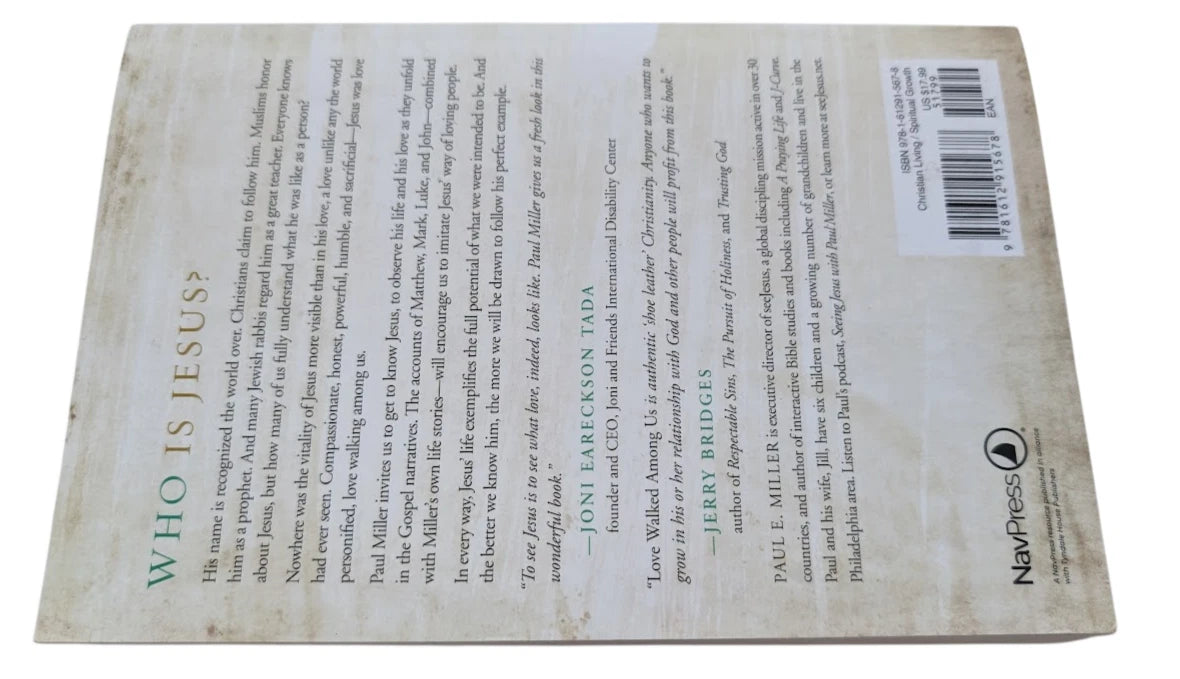 WHO IS JESUS?
His name is recognized the world over. Christians claim to follow him. Muslims honor
him as a prophet. And many Jewish rabbis regard him as a great teacher. Everyone knows
about Jesus, but how many of us fully understand what he was like as a person?
Nowhere was the vitality of Jesus more visible than in his love, a love unlike any the world
had ever seen. Compassionate, honest, powerful, humble, and sacrificial—Jesus was love
personified, love walking among us.
Paul Miller invites us to get to know Jesus, to observe his life and his love as they unfold
in the Gospel narratives. The accounts of Matthew, Mark, Luke, and John—combined
with Miller's own life stories—will encourage us to imitate Jesus' way of loving people.
In every way, Jesus' life exemplifies the full potential of what we were intended to be. And
the better we know him, the more we will be drawn to follow his perfect example.
“To see Jesus is to see what love, indeed, looks like. Paul Miller gives us a fresh look in this
wonderful book.”
—JONI EARECKSON TADA
founder and CEO, Joni and Friends International Disability Center
“Love Walked Among Us is authentic ‘shoe leather’ Christianity. Anyone who wants to
grow in his or her relationship with God and other people will profit from this book.”
—JERRY BRIDGES
author of Respectable Sins, The Pursuit of Holiness, and Trusting God
PAUL E. MILLER is executive director of seeJesus, a global discipling mission active in over 30
countries, and author of interactive Bible studies and books including A Praying Life and J-Curve.
Paul and his wife, Jill, have six children and a growing number of grandchildren and live in the
Philadelphia area. Listen to Paul's podcast, Seeing Jesus with Paul Miller, or learn more at seeJesus.net.
NavPress®
A NavPress resource published in alliance
with Tyndale House Publishers
ISBN 978-1-61291-567-8
Christian Living / Spiritual Growth
US $17.99
51799
9 781612 915678
EAN